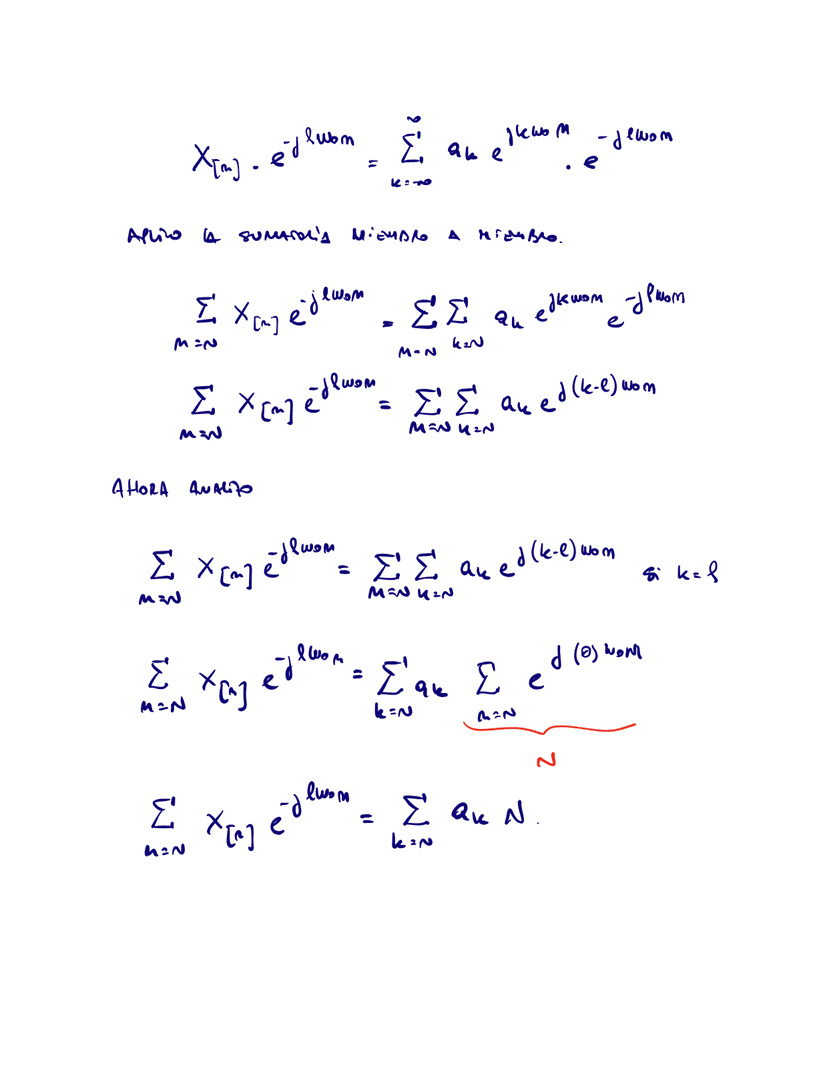 X[n] . e^{-jlω₀n} = ∑_{k=-∞}^{∞} aₖ e^{jkω₀n} . e^{-jlω₀n}
APLICO LA SUMATORIA MIEMBRO A MIEMBRO.
∑_{n=N} X[n] e^{-jlω₀n} = ∑_{n=N} ∑_{k=N} aₖ e^{jkω₀n} e^{-jlω₀n}
∑_{n=N} X[n] e^{-jlω₀n} = ∑_{n=N} ∑_{k=N} aₖ e^{j(k-l)ω₀n}
AHORA ANALIZO
∑_{n=N} X[n] e^{-jlω₀n} = ∑_{n=N} ∑_{k=N} aₖ e^{j(k-l)ω₀n} si k=l
∑_{n=N} X[n] e^{-jlω₀n} = ∑_{k=N} aₖ ∑_{n=N} e^{j(0)ω₀n}
N
∑_{n=N} X[n] e^{-jlω₀n} = ∑_{k=N} aₖ N.